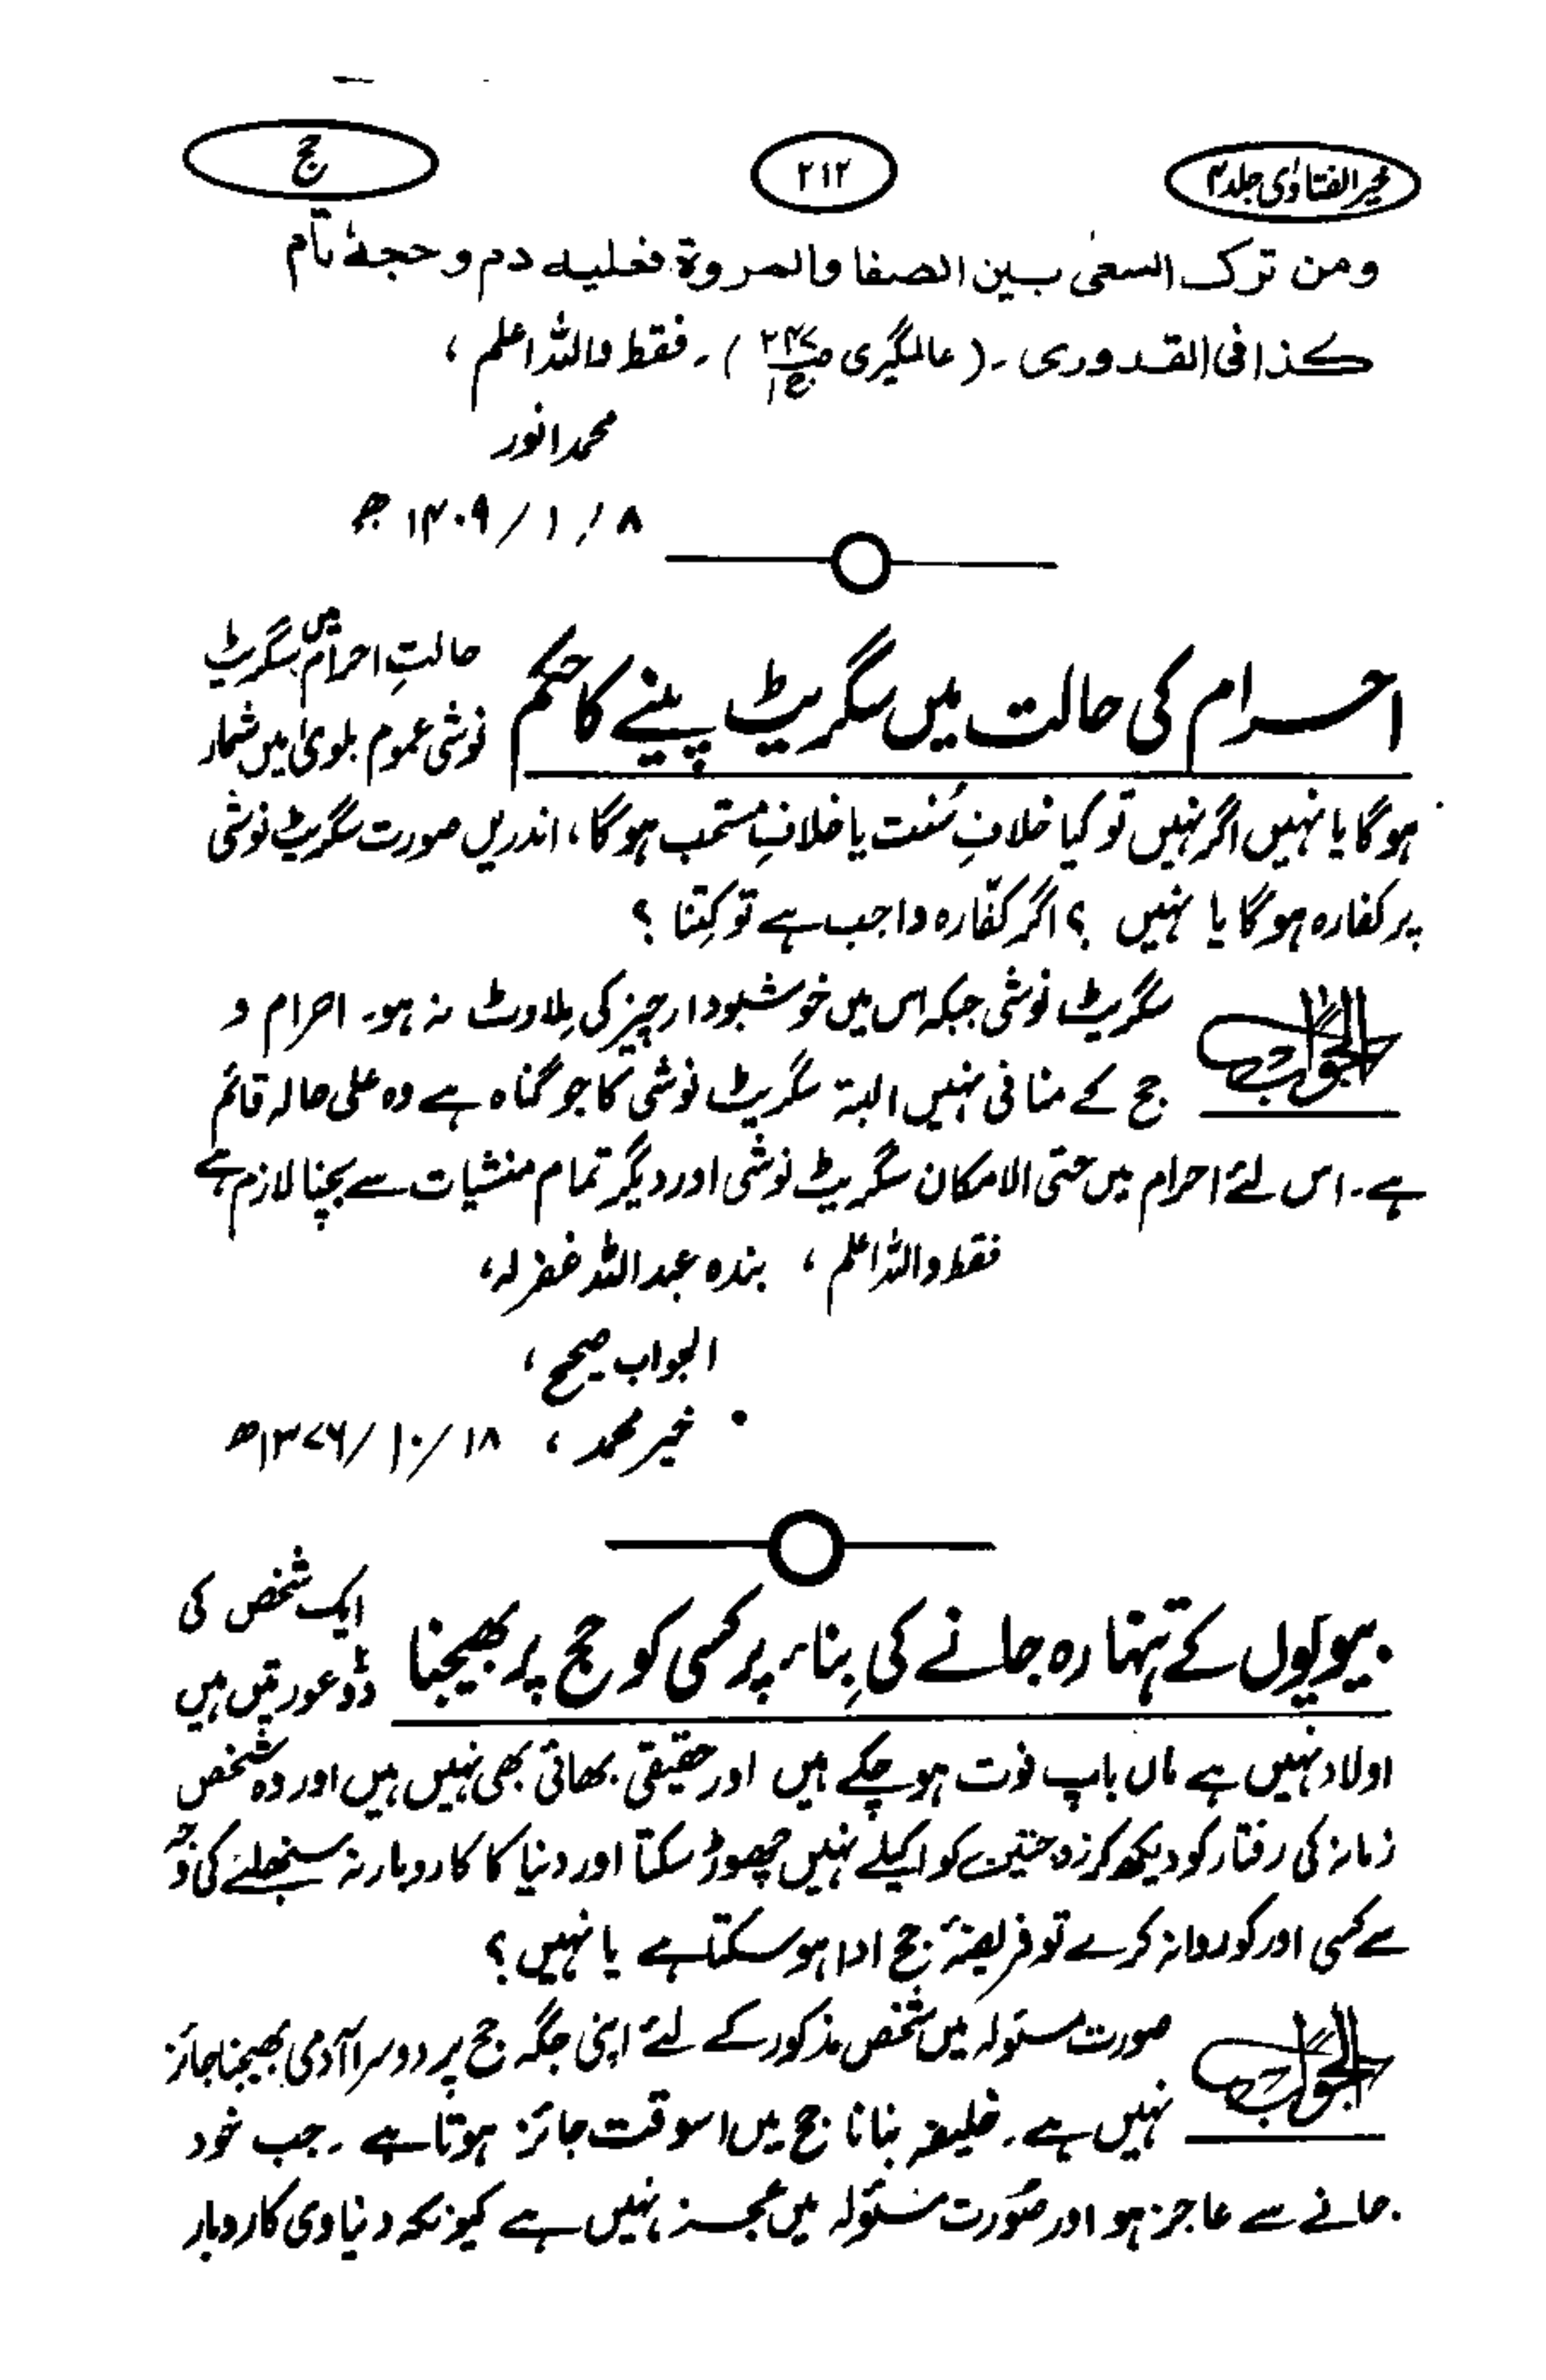 خیر الفتاوٰی جلد ۴
۲۱۲
حج
ومن ترک السعی بین الصفا والمروة فعلیہ دم وحجہ تام
کذا فی القدوری ۔ (عالمگیری ص۲۴۷ ج۱) ۔ فقط واللہ اعلم ،
محمد انور
۸ / ۱ / ۱۴۰۹ ھ
احرام کی حالت میں سگریٹ پینے کا حکم
حالتِ احرام میں سگریٹ
نوشی عموم بلویٰ میں شمار
ہوگا یا نہیں اگر نہیں تو کیا خلافِ سُنت یا خلافِ مستحب ہوگا ، اندریں صورت سگریٹ نوشی
پر کفارہ ہوگا یا نہیں ؟ اگر کفّارہ واجب ہے تو کِتنا ؟
الجواب
سگریٹ نوشی جبکہ اس میں خوشبودار چیز کی مِلاوٹ نہ ہو۔ احرام و
حج کے منافی نہیں البتہ سگریٹ نوشی کا جو گناہ ہے وہ علی حالہ قائم
ہے۔ اس لئے احرام میں حتی الامکان سگریٹ نوشی اور دیگر تمام منشیات سے بچنا لازم ہے
فقط واللہ اعلم ، بندہ عبد اللہ غفر لہ ،
الجواب صحیح ،
خیر محمد ، ۱۸ / ۱۰ / ۱۳۷۶ھ
بیویوں کے تنہا رہ جانے کی بِناء پر کسی کو حج پر بھیجنا
ایک شخص کی
دُو عورتیں ہیں
اولاد نہیں ہے ماں باپ فوت ہوچکے ہیں اور حقیقی بھائی بھی نہیں ہیں اور وہ شخص
زمانہ کی رفتار کو دیکھ کر زوجتین کو اکیلے نہیں چھوڑ سکتا اور دنیا کا کاروبار نہ سنبھلنے کی وجہ
سے کسی اور کو روانہ کرے تو فریضۂ حج ادا ہوسکتا ہے یا نہیں ؟
الجواب
صورت مسئولہ میں شخص مذکور کے لئے اپنی جگہ حج پر دوسرا آدمی بھیجنا جائز
نہیں ہے ۔ خلیفہ بنانا حج میں اسوقت جائز ہوتا ہے ۔ جب خود
جانے سے عاجز ہو اور صُورت مسئولہ میں عجز نہیں ہے کیونکہ دنیاوی کاروبار